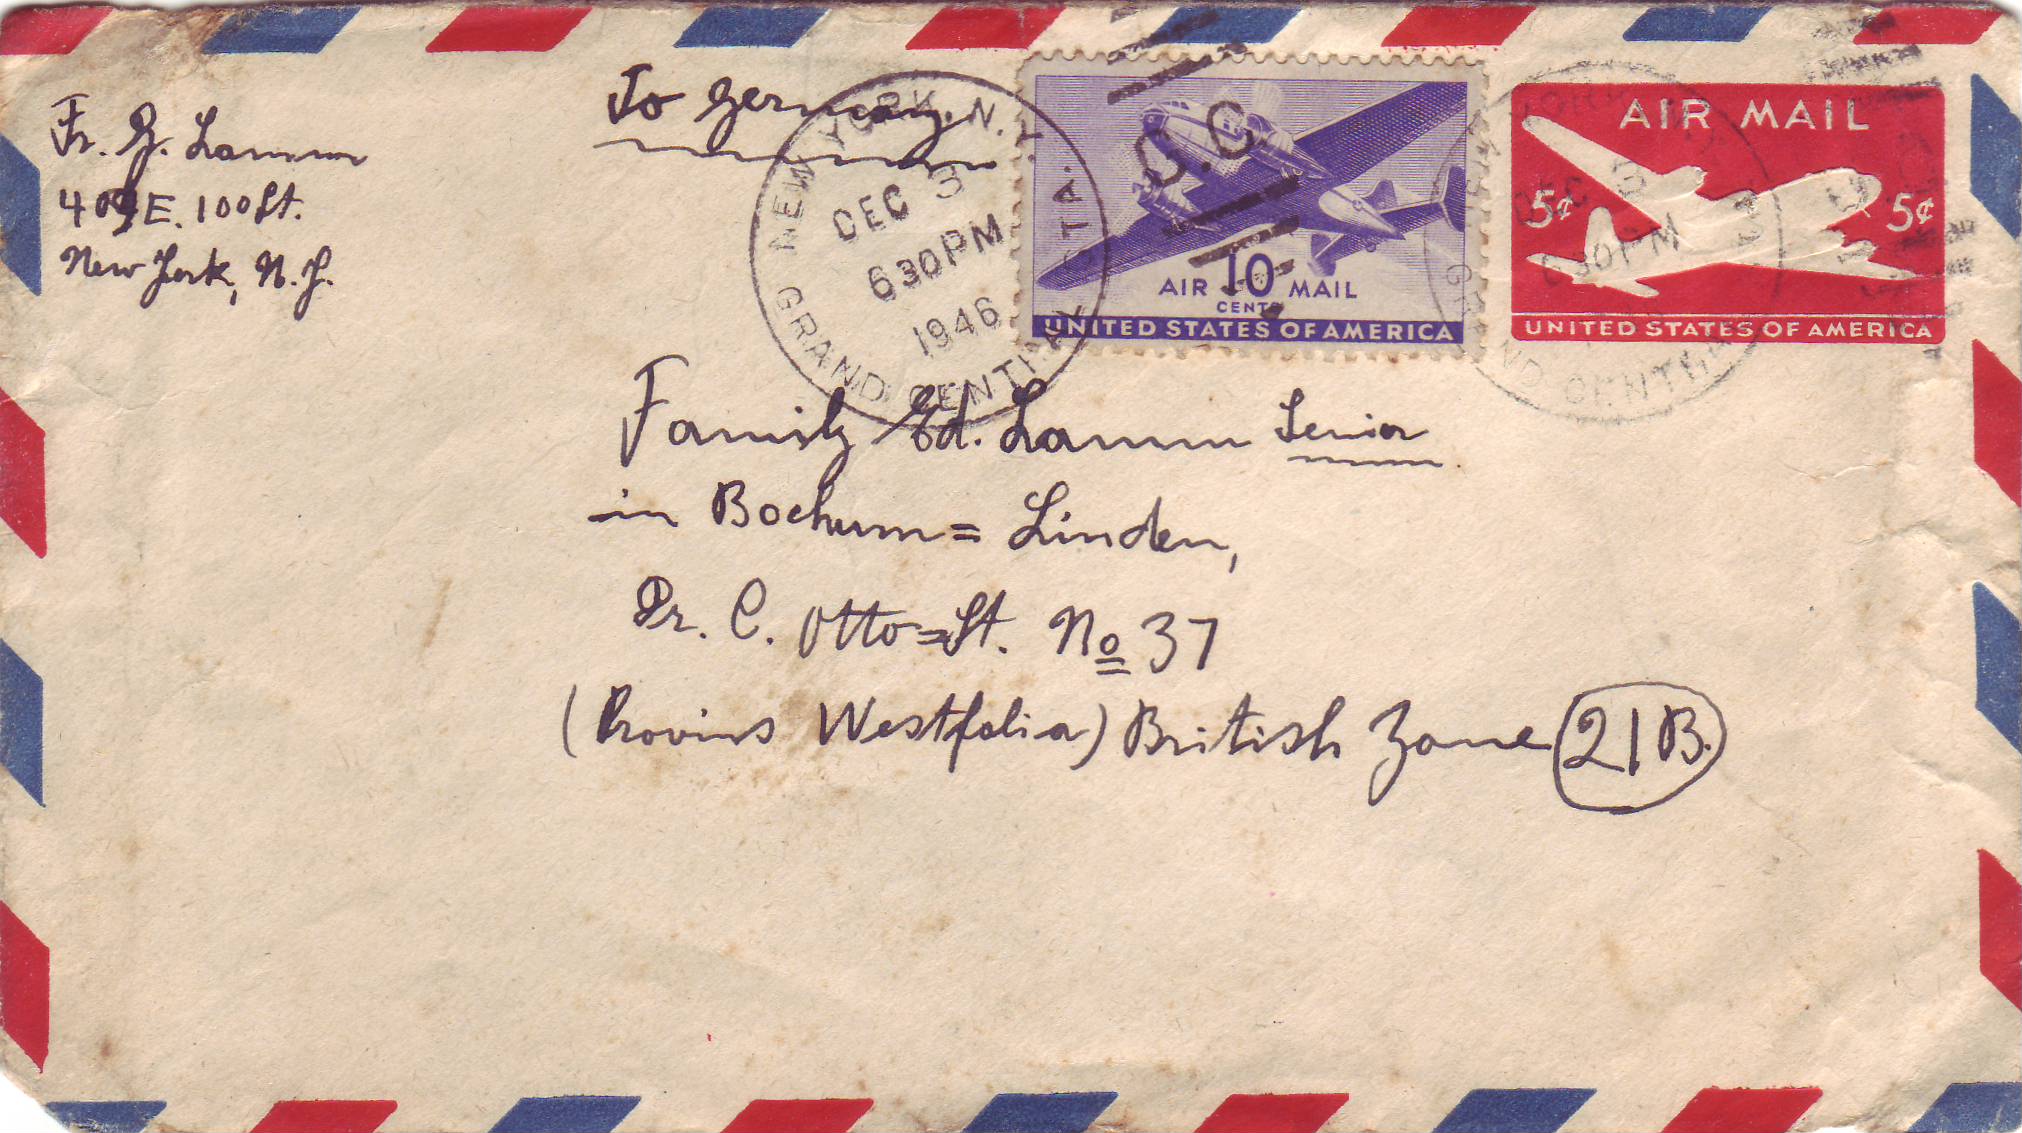 To Germany.
Fr. G. Lamm
409 E. 100 St.
New York, N.Y.
NEW YORK, N.Y.
DEC 3
630PM
1946
GRAND CENTRAL STA.
G.C.
AIR 10 MAIL
CENTS
UNITED STATES OF AMERICA
AIR MAIL
5¢ 5¢
UNITED STATES OF AMERICA
DEC 3
630PM
Family Ed. Lamm Senior
in Bochum=Linden,
Dr. C. Otto=St. No 37
(Provins Westfalia) British Zone 21B.